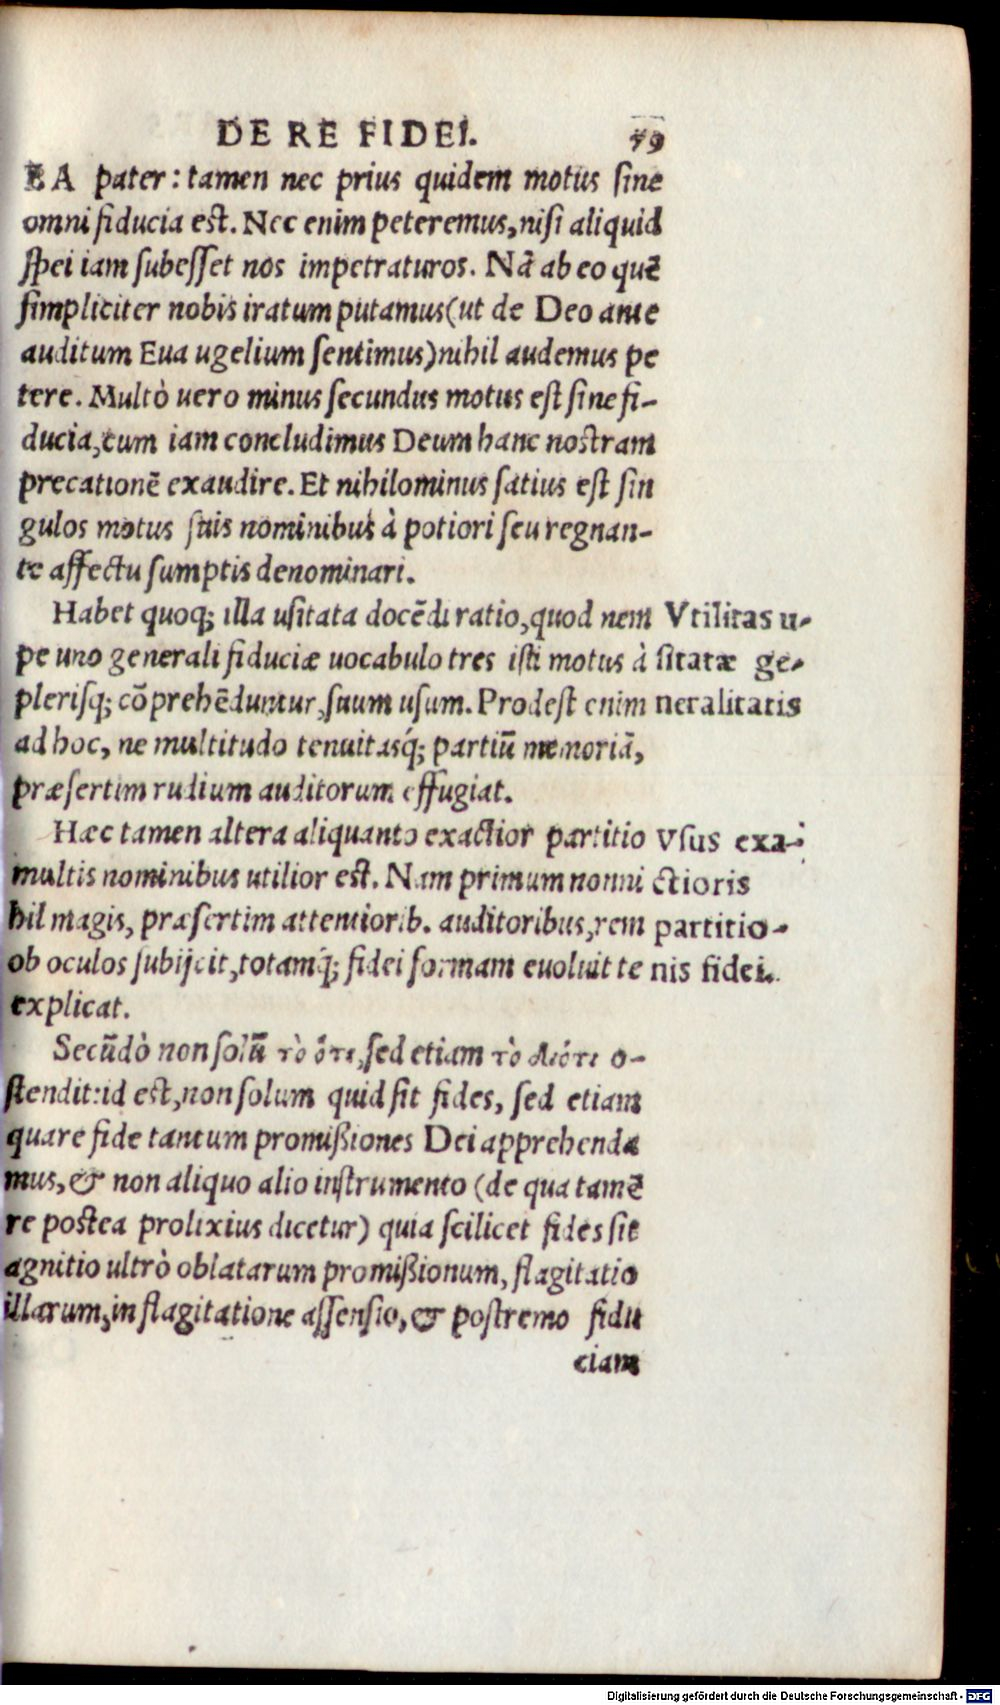 DE RE FIDEI. 79
EA pater: tamen nec prius quidem motus sine
omni fiducia est. Nec enim peteremus, nisi aliquid
spei iam subesset nos impetraturos. Nã ab eo quẽ
simpliciter nobis iratum putamus (ut de Deo ante
auditum Eua ugelium sentimus) nihil audemus pe
tere. Multò uero minus secundus motus est sine fi-
ducia, cum iam concludimus Deum hanc nostram
precationẽ exaudire. Et nihilominus satius est sin
gulos motus suis nominibus à potiori seu regnan-
te affectu sumptis denominari.
Habet quoq; illa usitata docẽdi ratio, quod nem
pe uno generali fiduciæ uocabulo tres isti motus à
plerisq; cõprehẽduntur, suum usum. Prodest enim
ad hoc, ne multitudo tenuitasq́; partiũ memoriã,
præsertim rudium auditorum effugiat.
Vtilitas u-
sitatæ ge-
neralitatis
Hæc tamen altera aliquanto exactior partitio
multis nominibus utilior est. Nam primum nonni
hil magis, præsertim attentiorib. auditoribus, rem
ob oculos subijcit, totamq́; fidei formam euoluit te
explicat.
Vsus exa-
ctioris
partitio-
nis fidei.
Secũdò non solũ τὸ ὅτι, sed etiam τὸ διότι o-
stendit: id est, non solum quid sit fides, sed etiam
quare fide tantum promißiones Dei apprehenda
mus, & non aliquo alio instrumento (de qua tamẽ
re postea prolixius dicetur) quia scilicet fides sit
agnitio ultrò oblatarum promißionum, flagitatio
illarum, in flagitatione assensio, & postremo fidu
ciam
Digitalisierung gefördert durch die Deutsche Forschungsgemeinschaft - DFG